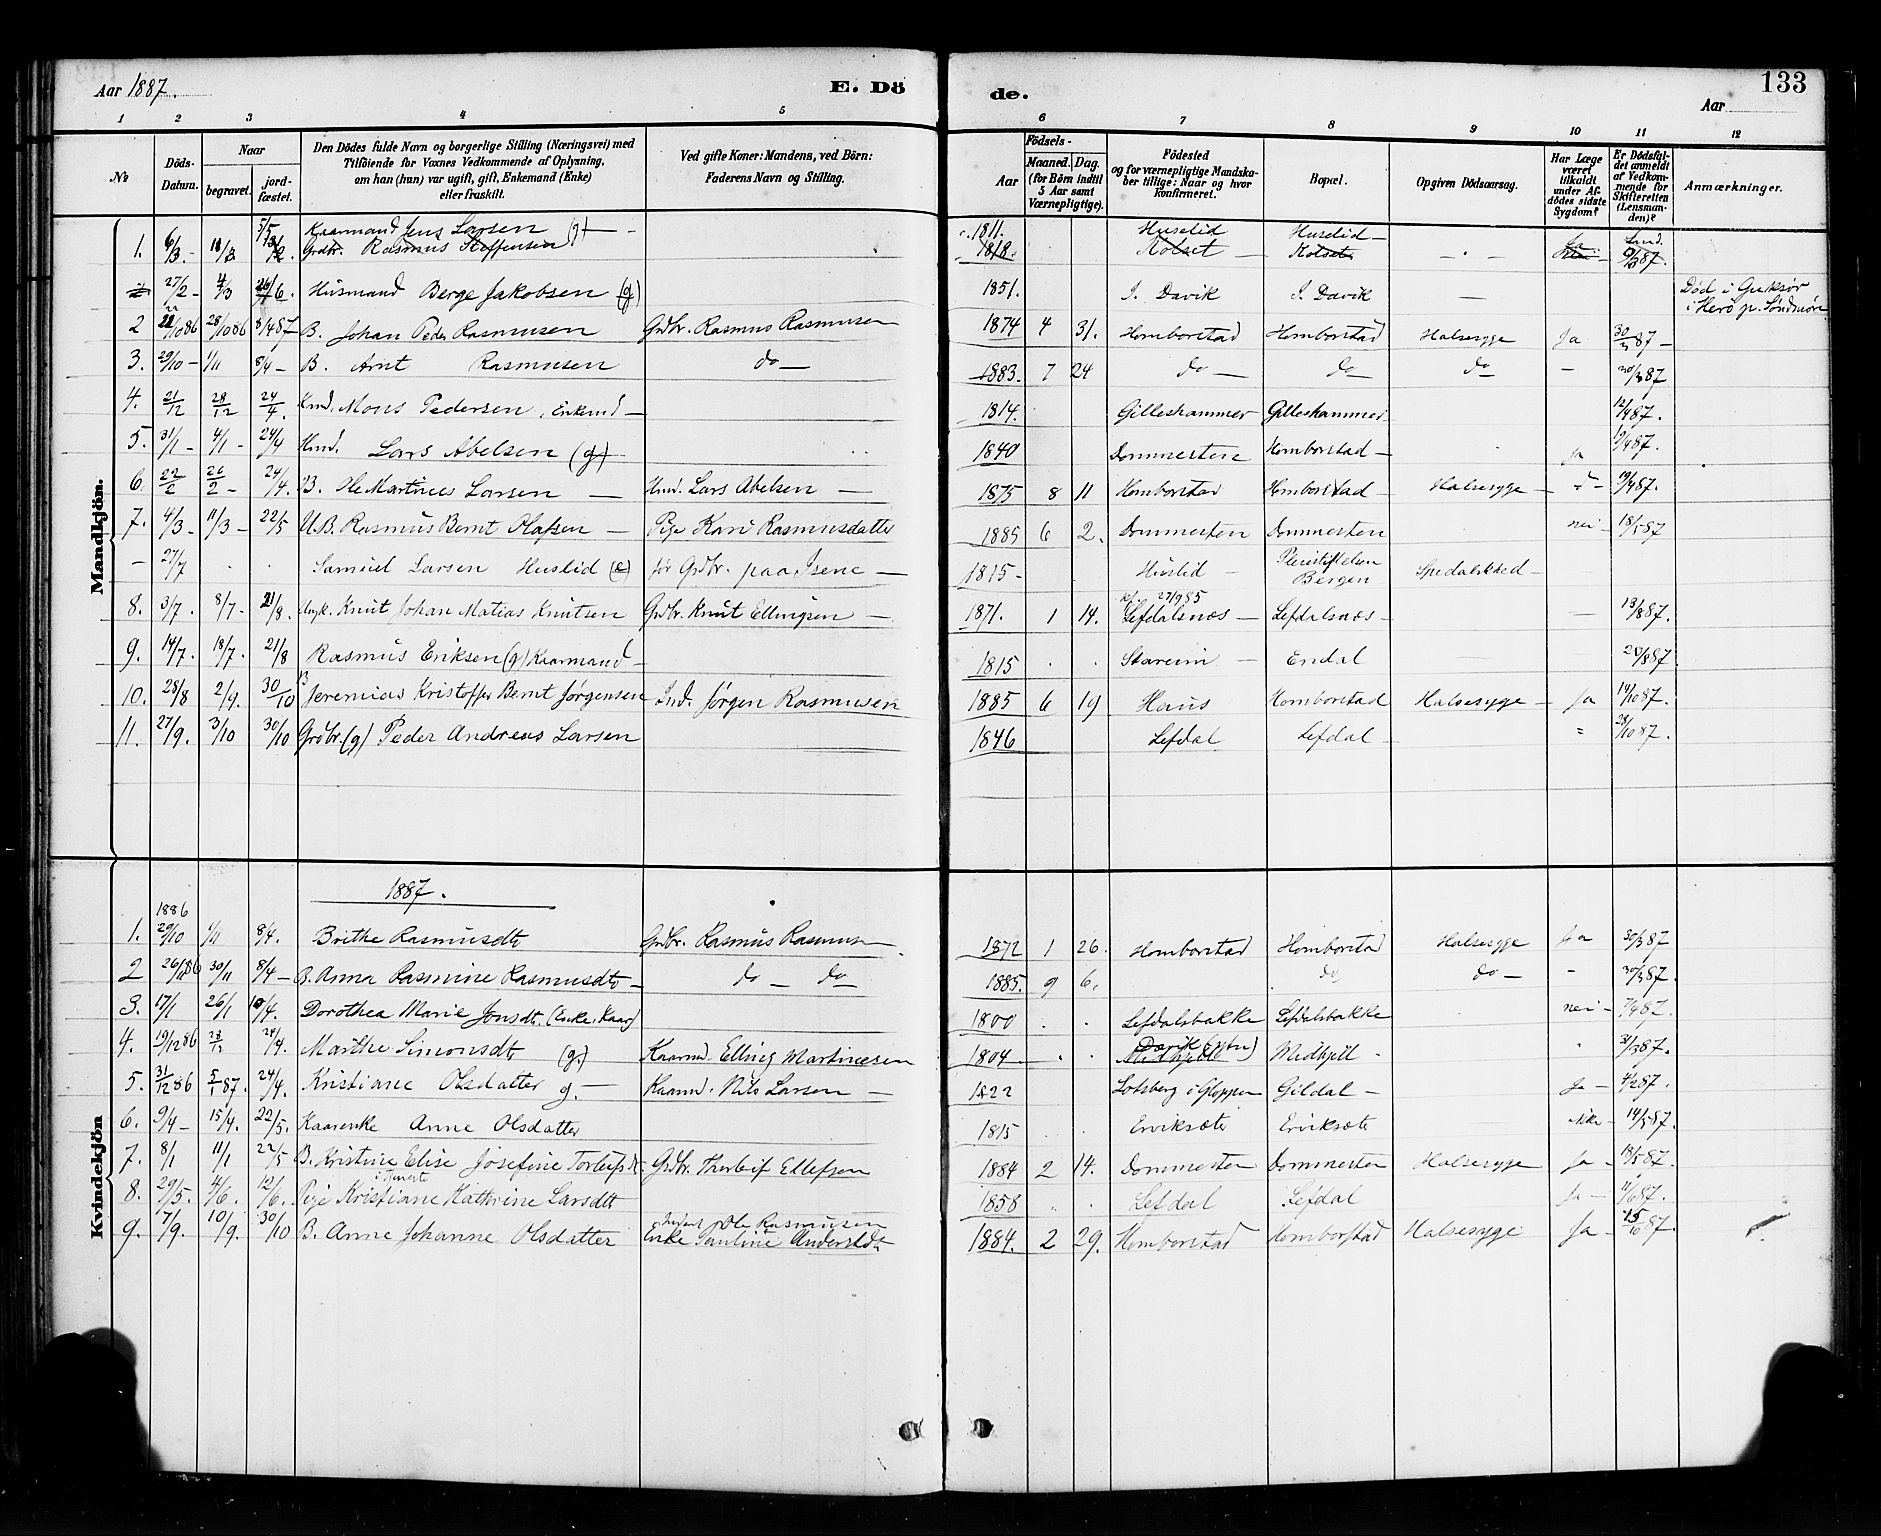 Aar 1887.
E. Dö
de.
133
Aar
1 2 3 4 5 6 7 8 9 10 11 12
No
Döds-Datum.
Naar
begravet.
jord-fæstet.
Den Dödes fulde Navn og borgerlige Stilling (Næringsvei) med
Tilföiende for Voxnes Vedkommende af Oplysning,
om han (hun) var ugift, gift, Enkemand (Enke)
eller fraskilt.
Ved gifte Koner: Mandens, ved Börn:
Faderens Navn og Stilling.
Födsels-
Aar
Maaned. Dag.
(for Börn indtil
5 Aar samt
Værnepligtige).
Födested
og for værnepligtige Mandska-
ber tillige: Naar og hvor
konfirmeret.
Bopæl.
Opgiven Dödsaarsag.
Har Læge
været
tilkaldt
under Af-
dödes sidste
Sygdom?
Er Dödsfal-
det anmeldt
af Vedkom-
mende for
Skifteretten
(Lensman-
den)?
Anmærkninger.
Mandkjön.
Kaarmand Jens Larsen (g) 1811. Huselid Huselid Ja
1. 6/3. Grdbr. Rasmus Steffensen 1818. Kolset Kolset
27/2 4/3 26/6. Husmand Berge Jakobsen (g) 1851. I. Davik I. Davik Död i
i Herö p. Söndmöre
2 28/10 86 8/4 87 B. Johan Peder Rasmusen Grdbr. Rasmus Rasmusen 1874 4 31. Homborstad Homborstad Halsesyge Ja 30/3 87
3. 29/10 1/11 8/4 B. Arnt Rasmusen do 1883. 7 24 do do do 30/3 87
4. 21/12 28/12 24/4. Kmd. Mons Pedersen, Enkemd 1814. Gilleshammer Gilleshammer 12/4 87.
5. 31/1 4/1 24/4 Hmd. Lars Abelsen (g) 1840 Dommesten Homborstad Ja
6. 22/2 26/2 24/4. B. Ole Martinus Larsen Hmd. Lars Abelsen 1875 8 11 Homborstad Homborstad Halsesyge 19/4 87.
7. 4/3 11/3 22/5 U.B. Rasmus Bernt Olafsen Pige Kari Rasmusdatter 1885 6 2. Dommesten Dommesten nei 18/5 87
27/7 Samuel Larsen Huslid (e) för Grdbr. paa Isene 1815 Huslid Pleiestiftelsen
Bergen Spedalskhed
8. 3/7. 8/7 21/8. Ungk. Knut Johan Matias Knutsen Grdbr. Knut Ellingsen 1871. 1 14. kf. 27/9 85
Lefdalsnæs Lefdalsnæs 13/8 87.
9. 14/7. 18/7. 21/8 Rasmus Eriksen (g) Kaarmand 1815 Stareim Endal 20/8 87
10. 28/8 2/9. 30/10 B Jeremias Kristoffer Bernt Jørgensen Ind. Jørgen Rasmusen 1885 6 19 Haus Homborstad Halsesyge Ja 14/10 87.
11. 27/9. 3/10 30/10 Grdbr. (g) Peder Andreas Larsen 1846 Lefdal Lefdal 28/10 87.
Kvindekjön
1887.
1886
1. 29/10 1/11 8/4. Brithe Rasmusdtr Grdbr. Rasmus Rasmusen 1872 1 26. Homborstad Homborstad Halsesyge Ja 30/3 87
2 26/11 86 30/11 8/4 B. Anna Rasmine Rasmusdtr do do 1885. 9 6. do do 30/3 87.
3. 17/1 26/1 10/4. Dorothea Marie Jonsdt. (Enke. Kaar) 1800 Lefdalsbakke Lefdalsbakke nei 7/4 87.
4. 19/12 86 28/12 24/4. Marthe Simonsdtr (g.) Kaarmd. Elling Martinusen 1804 Davik
Midhjell Midhjell 31/3 87.
5. 31/12 86 5/1 87. 24/4. Kristiane Olsdatter g. Kaarmd. Nils Larsen 1822 Lotsberg i Gloppen Gildal Ja 4/2 87.
6. 9/4 15/4. 22/5. Kaarenke Anne Olsdatter 1815 Erviksæte Erviksæte 14/5 87.
7. 8/1 11/1 22/5 B. Kristine Elise Josefine Torleifsdt. Grdbr. Thorleif Ellefsen 1884 2 14. Dommesten Dommesten Halsesyge Ja 18/5 87.
8. 29/5. 4/6. 12/6. Pige Kristiane Kathrine Larsdtr 1858 Lefdal Lefdal Ja 11/6 87.
9. 7/9. 10/9. 30/10 B. Anne Johanne Olsdatter Inderst Ole Rasmusen
Enke Pauline Andersdt. 1884. 2 29. Homborstad Homborstad Halsesyge Ja 15/10 87.